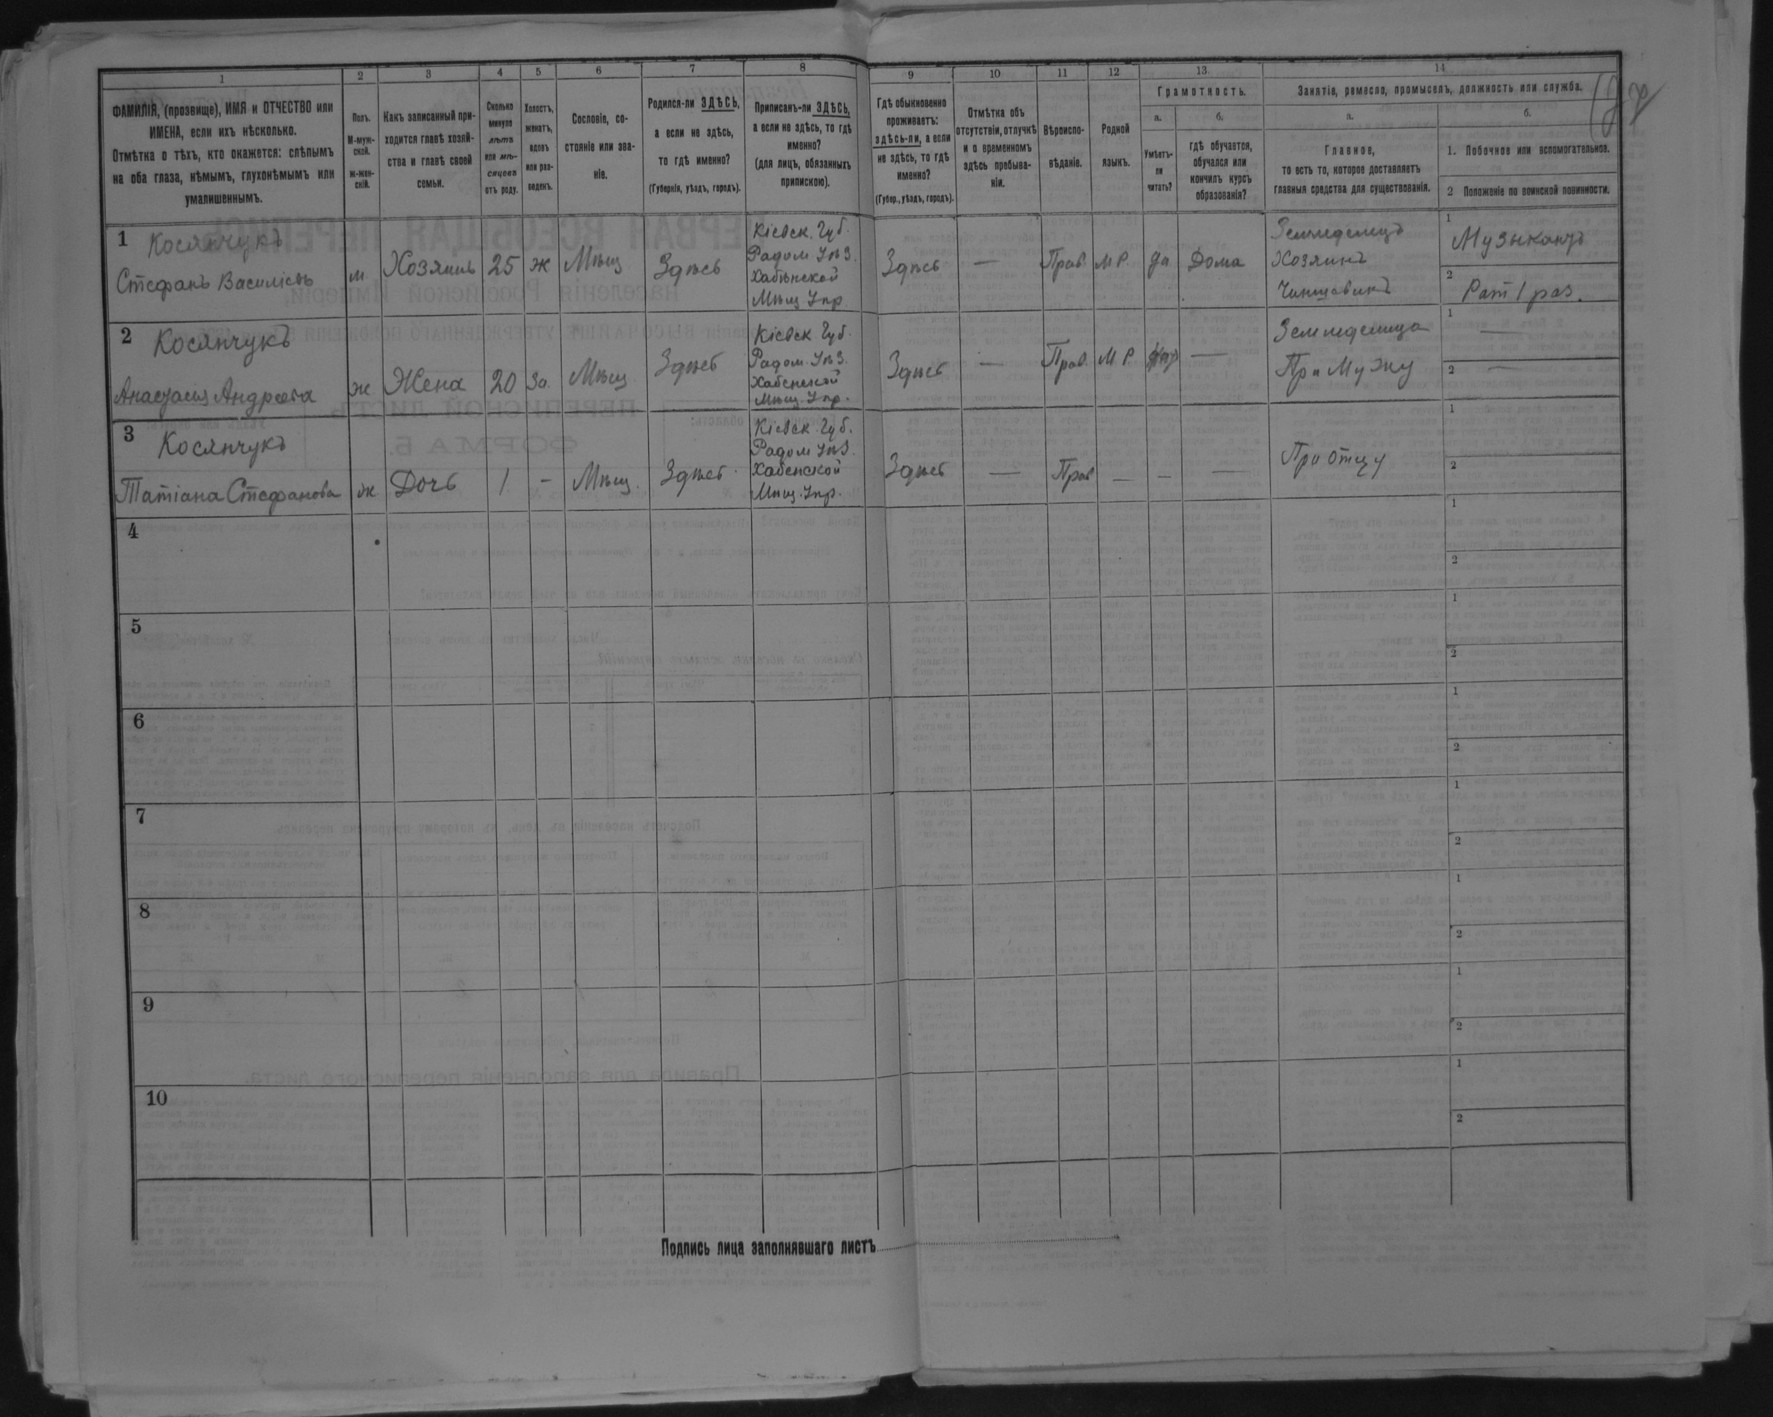 1 2 3 4 5 6 7 8 9 10 11 12 13 14
ФАМИЛІЯ, (прозвище), ИМЯ и ОТЧЕСТВО или
ИМЕНА, если ихъ нѣсколько.
Отмѣтка о тѣхъ, кто окажется: слѣпымъ
на оба глаза, нѣмымъ, глухонѣмымъ или
умалишеннымъ.
Полъ.
М-муж-
ской.
ж-жен-
скій.
Какъ записанный при-
ходится главѣ хозяй-
ства и главѣ своей
семьи.
Сколько
минуло
лѣтъ
или мѣ-
сяцевъ
отъ роду.
Холостъ,
женатъ,
вдовъ
или раз-
веденъ.
Сословіе, со-
стояніе или зва-
ніе.
Родился-ли ЗДѢСЬ,
а если не здѣсь,
то гдѣ именно?
(Губернія, уѣздъ, городъ).
Приписанъ-ли ЗДѢСЬ,
а если не здѣсь, то гдѣ
именно?
(для лицъ, обязанныхъ
припискою).
Гдѣ обыкновенно
проживаетъ:
здѣсь-ли, а если
не здѣсь, то гдѣ
именно?
(Губер., уѣздъ, городъ).
Отмѣтка объ
отсутствіи, отлучкѣ
и о временномъ
здѣсь пребыва-
ніи.
Вѣроиспо-
вѣданіе.
Родной
языкъ.
Грамотность.
а.
Умѣетъ-
ли
читать?
б.
гдѣ обучается,
обучался или
кончилъ курсъ
образованія?
Занятіе, ремесло, промыселъ, должность или служба.
а.
Главное,
то есть то, которое доставляетъ
главныя средства для существованія.
б.
1. Побочное или вспомогательное.
2 Положеніе по воинской повинности.
1 Косянчукъ
Стефанъ Василіевъ
м
Хозяинъ
25
ж
Мѣщ
Здѣсь
Кіевск. Губ.
Радом Уѣз.
Хабѣнской
Мѣщ Упр
Здѣсь
—
Прав
МР.
да
Дома
Земледелецъ
Хозяинъ
Чиншевикъ
1 Музыкантъ
2 Рат 1 раз.
2 Косянчукъ
Анастасія Андреева
ж
Жена
20
За
Мѣщ
Здѣсь
Кіевск Губ.
Радом. Уѣз.
Хабенской
Мѣщ. Упр.
Здѣсь
—
Прав
МР.
—
Земледелица
При Мужу
1 —
2 —
3 Косянчукъ
Татіана Стефанова
ж
Дочь
1
—
Мѣщ
Здѣсь
Кіевск Губ.
Радом Уѣз.
Хабенской
Мѣщ. Упр.
Здѣсь
—
Прав
—
—
—
При отцу
1
2
4
1
2
5
1
2
6
1
2
7
1
2
8
1
2
9
1
2
10
1
2
Подпись лица заполнявшаго листъ